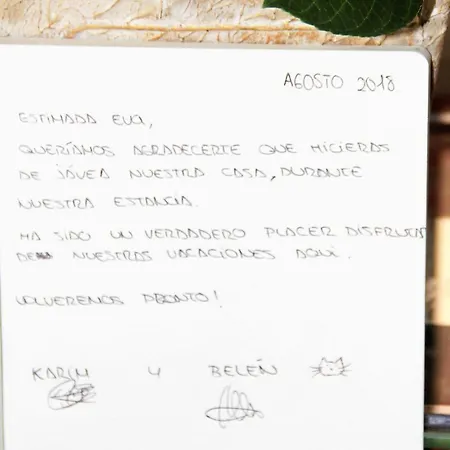 AGOSTO 2018
ESTIMADA EVA,
QUERÍAMOS AGRADECERTE QUE HICIERAS
DE JÁVEA NUESTRA CASA, DURANTE
NUESTRA ESTANCIA.
HA SIDO UN VERDADERO PLACER DISFRUTAR
DE NUESTRAS VACACIONES AQUÍ.
VOLVEREMOS PRONTO!
KARIM Y BELÉN